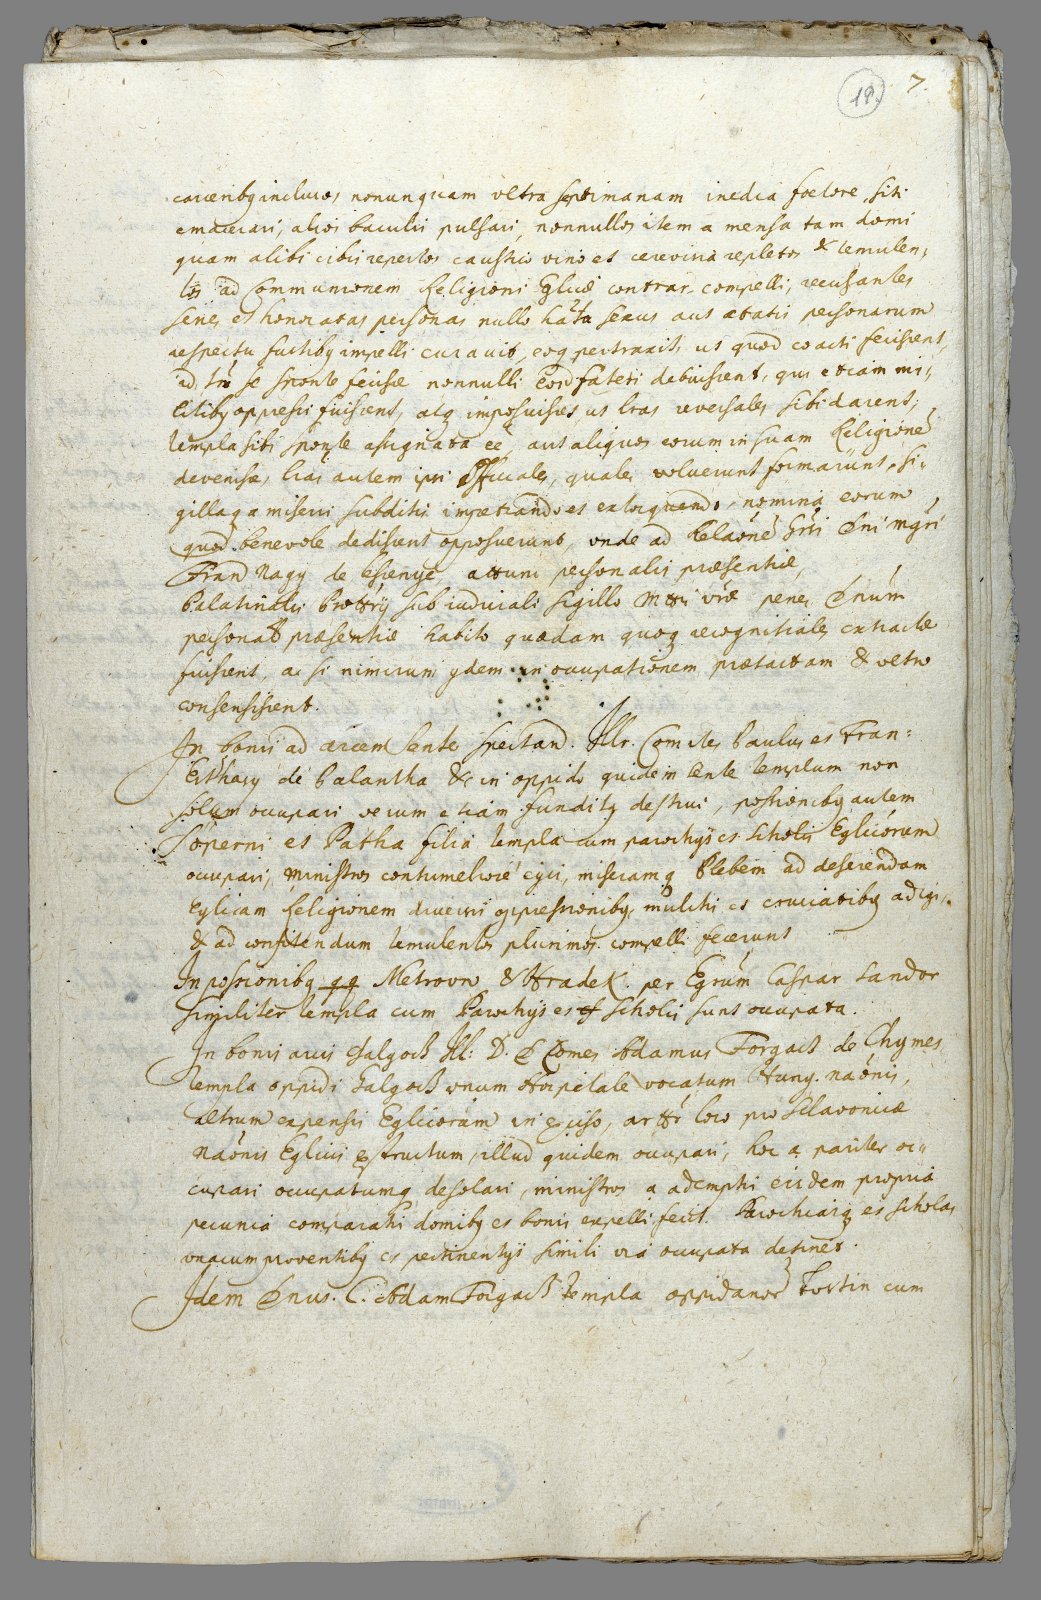 18. 7.
carceribq inclusos nonunquam ultra septimanam inedia foetore, siti
emacerari, alios baculis pulsari, nonnullos item a mensa tam domi
quam alibi cibis repertos caustico vino et cerevisia repletos & temulen,
tos ad Communionem Religioni Eglicae contrar. compelli, recusantes
senes et honoratas personas nullo habita sexus aut aetatis personarum
respectu fustibq impelli curavit, eoq pertraxit, ut quod coacti fecissent,
id tn se sponte fecisse nonnulli eord fateri debuissent, qui etiam mi,
litibq oppressi fuissent, atq imposuisset, ut lras reversales sibi darent,
templa sibi sponte assignata eē, aut aliquos eorum in suam Religionē
devenisse, lras autem ipsi Officiales, quales voluerunt formarunt, si,
gillaq a miseris subditis impetrando et extorquendo, nomina eorum,
quod benevole dedissent opposuerunt, unde ad Relaōnē Grsi Dni Mgri
Fran Nagy de Esenye, attum personalis praesentiae,
Palatinalis Prottrij sub iudiciali sigillo Mttis vrae penes Dnum
personal praesentiae habito quaedam quoq recognitiales extractae
fuissent, ac si nimirum ydem in occupationem praetactam & ultro
consensissent.
In bonis ad arcem Sente spectand. Illr. Comites Paulus et Fran:
Esthasy de Galantha & in oppido quidem Sente templum non
solum occupari verum etiam funditq destrui, possionibq autem
Soperni et Patha filia templa cum parochijs et scholis Eglicorum
occupari, ministros contumeliose eyci, miseramq Plebem ad deserendam
Eglicam Religionem diversis oppressionibq, mulctis et cruciatibq adigi,
& ad confitendum temulentos plurimos compelli fecerunt
In possionibq qq Metrovo & Hradek. per Egrum Caspar Sandor
similiter templa cum Parochijs et scholis sunt occupata.
In bonis arcis Galgocz Ill: D. D Comes Adamus Forgacz de Ghymes,
templa oppidi Galgocz unum Hospitale vocatum Hung. naōnis,
altrum expensis Eglicorum in exciso, arttr loco pro Sclavonicae
Naōnis Eglicis exstructum, illud quidem occupari, hoc a pariter oc=
cupari occupatumq desolari, ministros a ademptis eisdem propria
pecunia comparatis domibq et bonis expelli fecit. Parochiasq et scholas
unacum proventibq et pertinentijs simili via occupata detinet.
Idem Dnus. C. Adam Forgacz templa oppidanor Fortin cum